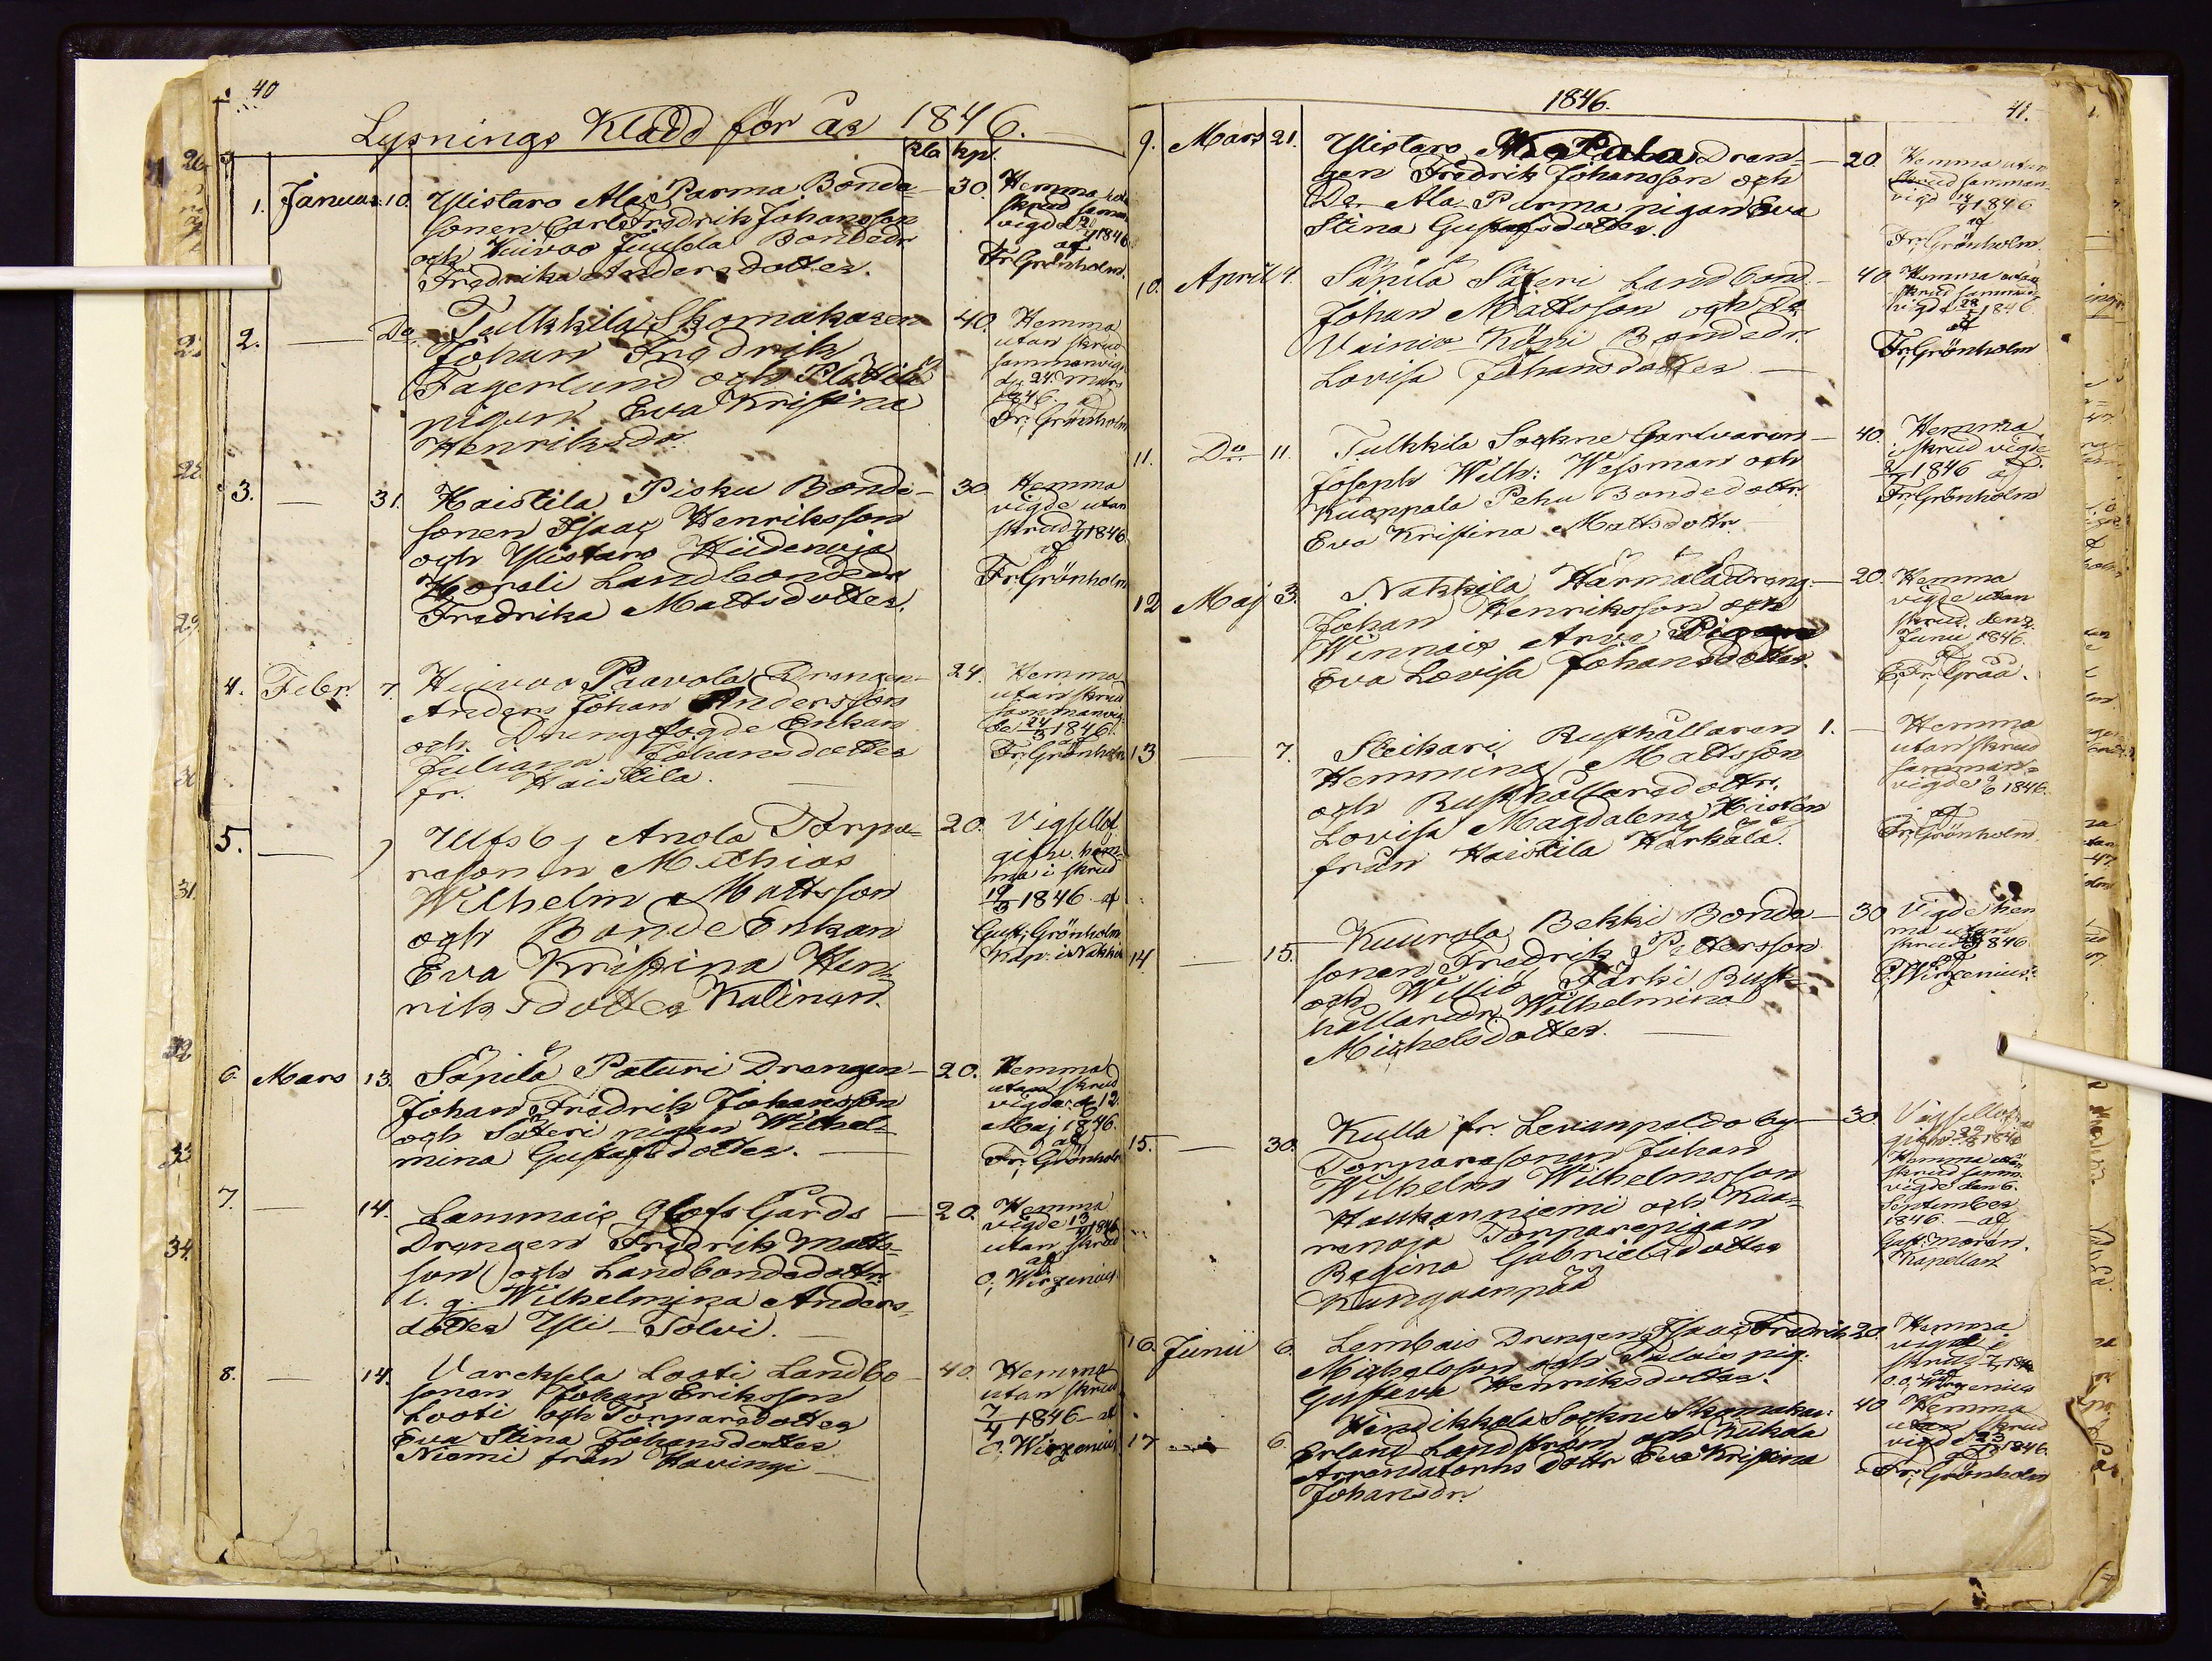 40
Lysnings Kladd för år 1846.
Rb kp.
1. Januar. 10. Ylistaro Ala Parma Bonda- 30.
sonen Carl Fredrik Johansson
och Kuivoo Juusela Bondedr
Fredrika Andersdotter.
Hemma
skrud samman
vigde 1846
af
Fr. Grönholm.
2. — Do Tulkkila Skomakaren 40.
Johan Fredrik
Fagerlund och
pigan Eva Kristina
Henriksdr.
Hemma
utan skrud
sammanvigde
d. 24. Mars
1846. af
Fr. Grönholm
3. — 31. Haistila Pisku Bonde- 30
sonen Isaac Henriksson
och Ylistaro Hiidenoja
Landbondedr
Fredrika Mattsdotter.
Hemma
vigde utan
skrud 1846
af
Fr. Grönholm
4. Febr. 7. Kuivoo Paavola Drangen- 24.
Anders Johan Andersson
och Drengfogde Enkan
Juliana Johansdotter
fr. Haistila.
Hemma
utan skrud
sammanvig
de 24/5 1846.
af
Fr. Grönholm
5. — Ulfsby Anola Torpa- 20.
resonen Mathias
Wilhelm Mattsson
och Bonde Enkan
Eva Kristina Hen-
riksdotter Kalinen.
Vigsellof
gifne. hem-
ma i skrud
19/3 1846 af
Gust. Grönholm
Kap. i Nakkila
6 Mars 13. Säpilä Paturi Drangen- 20.
Johan Fredrik Johansson
och Säteri pigan Wilhel-
mina Gustafsdotter. —
Hemma
utan skrud
vigde d. 12.
Maj 1846.
af
Fr. Grönholm
7. — 14. Lammais Olofsgårds — 20.
Drangen Fredrik Matts-
son och Landbondedottr.
l. q. Wilhelmina Anders-
dotter Yli-Sölvi. —
Hemma
vigde 13/4 1846
utan skrud
af
O. Wirzenius
8. — 14. Looti Landbo- 40.
sonen Johan Eriksson
Looti och Torparedotter
Eva Stina Johansdotter
Niemi från Havingi —
Hemma
utan skrud
7/4 1846 af
O. Wirzenius
1846.
41.
9. Mars 21. Ylistaro Dran- 20
gen Fredrik Johansson och
Do Ala Parma pigan Eva
Stina Gustafsdotter.
Hemma utan
skrud samman-
vigd 1846
af
Fr. Grönholm.
10. April 4. Säpilä Säteri Landbond. 40
Johan Mattsson och
Vainio Köpi Bondedr.
Lovisa Johansdotter —
Hemma utan
skrud samman-
vigde 1846.
af
Fr. Grönholm
11. Do 11. Tulkkila Sockne Garfvaren 40.
Joseph Wilh: Wessman och
Kuappala Pehu Bondedottr.
Eva Kristina Mattsdottr.
Hemma
i skrud vigde
1846 af
Fr. Grönholm
12 Maj 3. Nakkila Härmälä dreng. 20.
Johan Henriksson och
Winnais Pigan
Eva Lovisa Johansdotter.
Hemma
vigde utan
skrud. den 2.
Junii 1846.
af
E. Fr. Gråå.
13 — 7. Steikari Rusthållaren 1. —
Hemming Mattsson
och Rusthållaredottr.
Lovisa Magdalena
från Haistila Härkälä.
Hemma
utan skrud
samman-
vigde 1846.
af
Fr. Grönholm
14 — 15. Kuurola Bekki Bonde- 30
sonen Fredrik Pettersson
och Williö Järhi Rust-
hållaredr. Wilhelmina
Michelsdotter. —
Vigde hem
ma utan
skrud 1846
af
O. Wirzenius
15. — 30. Kulla fr. Levanpeldo by 30
Torparesonen Johan
Wilhelm Wilhelmsson
Haukanniemi och Kua-
renoja Torparepigan
Regina Gabrielsdotter
Kungaanpää
Vigsellof
gifne 1846
Hemma utan
skrud samm.
vigde den 6.
September
1846. — af
Gust. Moren.
Kapellan
16. Junii 6. Lembais Drengen Isaac Fredrik 20.
Michelsson och Sulois pig.
Gustava Henriksdotter.
Hemma
vigde i
skrud
af
O. Wirzenius
17 — 6. Hindikkala Sockne Skomakar: 40
Erland Landström och Kukola
Arrendatorns dottr Eva Kristina
Johansdr.
Hemma
utan skrud
vigde 1846.
af
Fr. Grönholm